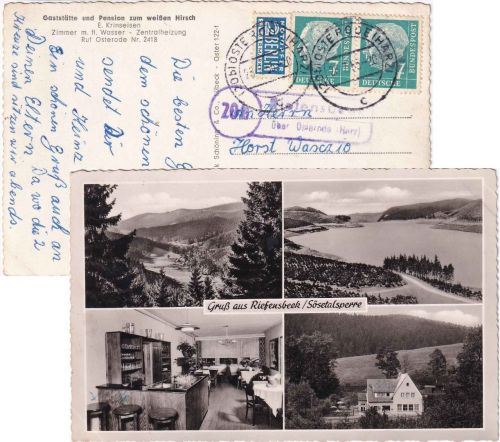 Gaststätte und Pension zum weißen Hirsch
E. Krinseisen
Zimmer m. fl. Wasser - Zentralheizung
Ruf Osterode Nr. 2418
Die besten G
dem schönen
sendet Dir
und Heinz
Ein schönen Gruß auch an
Deinen Eltern. Da wo die 2
Kreuze sind sitzen wir abends.
NOTOPFER
2 BERLIN
STEUERMARKE
7
DEUTSCHE BUNDESPOST
7
DEUTSCHE BUNDESPOST
OSTERODE (HARZ)
c
20b
über Osterode (Harz)
Herrn
Horst Waszio
Gruß aus Riefensbeek / Sösetalsperre